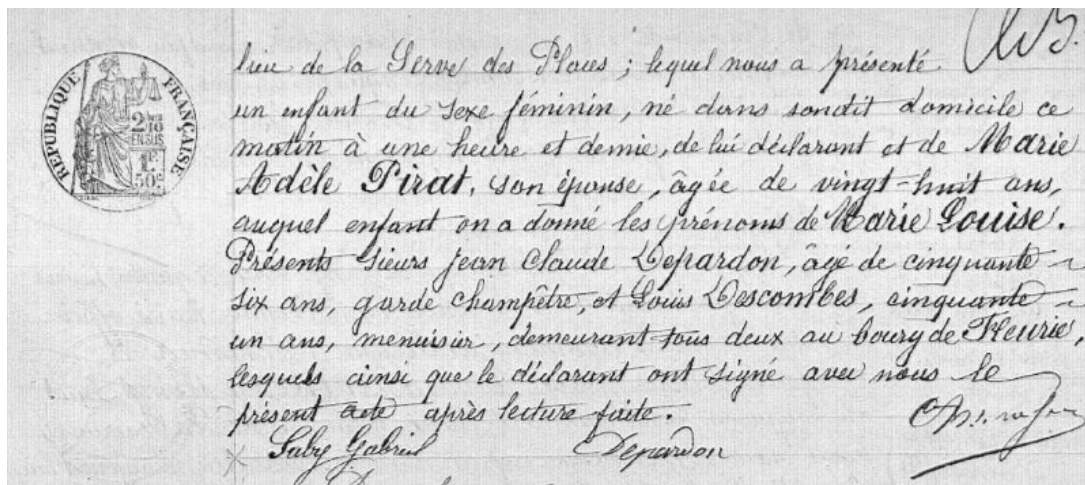 RÉPUBLIQUE FRANÇAISE
2/10
EN SUS
1F.
50c.
lieu de la Serve des Places ; lequel nous a présenté
un enfant du sexe féminin, né dans sondit domicile ce
matin à une heure et demie, de lui déclarant et de Marie
Adèle Pirat, son épouse, âgée de vingt-huit ans,
auquel enfant on a donné les prénoms de Marie Louise.
Présents sieurs Jean Claude Depardon, âgé de cinquante
six ans, garde champêtre, et Louis Descombes, cinquante
un ans, menuisier, demeurant tous deux au bourg de Fleurie,
lesquels ainsi que le déclarant ont signé avec nous le
présent acte après lecture faite.
Saby Gabriel Depardon